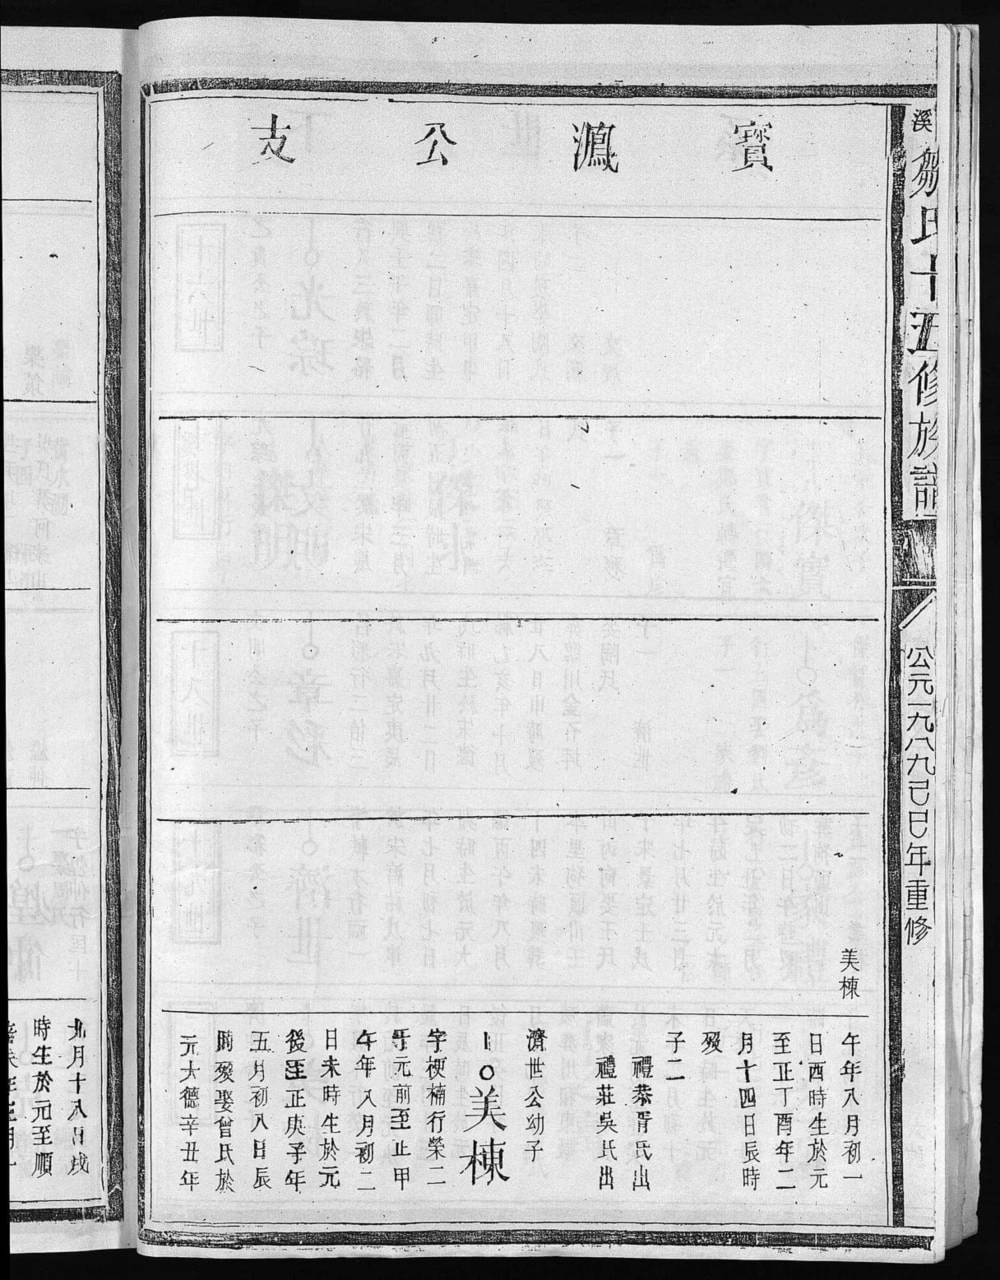 溪鄒氏十五修族譜
公元一九八九己巳年重修
寳鴻公支
美棟
午年八月初一
日酉時生於元
至正丁酉年二
月十四日辰時
歿
子二
禮恭胥氏出
禮莊吳氏出
濟世公幼子
美棟
字梗楠行榮二
于元前至正甲
午年八月初二
日未時生於元
後至正庚子年
五月初八日辰
時歿娶曾氏於
元大德辛丑年
九月十八日戌
時生於元至順